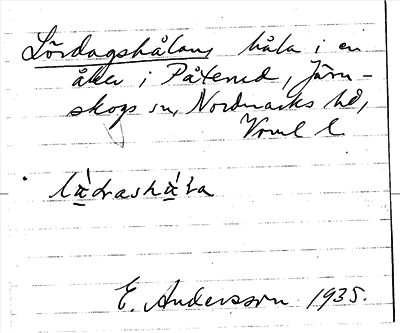 Lördagshålan, håla i en
åker i Påterud, Järn-
skogs sn, Nordmarks hd,
Vrml l
E. Andersson 1935.